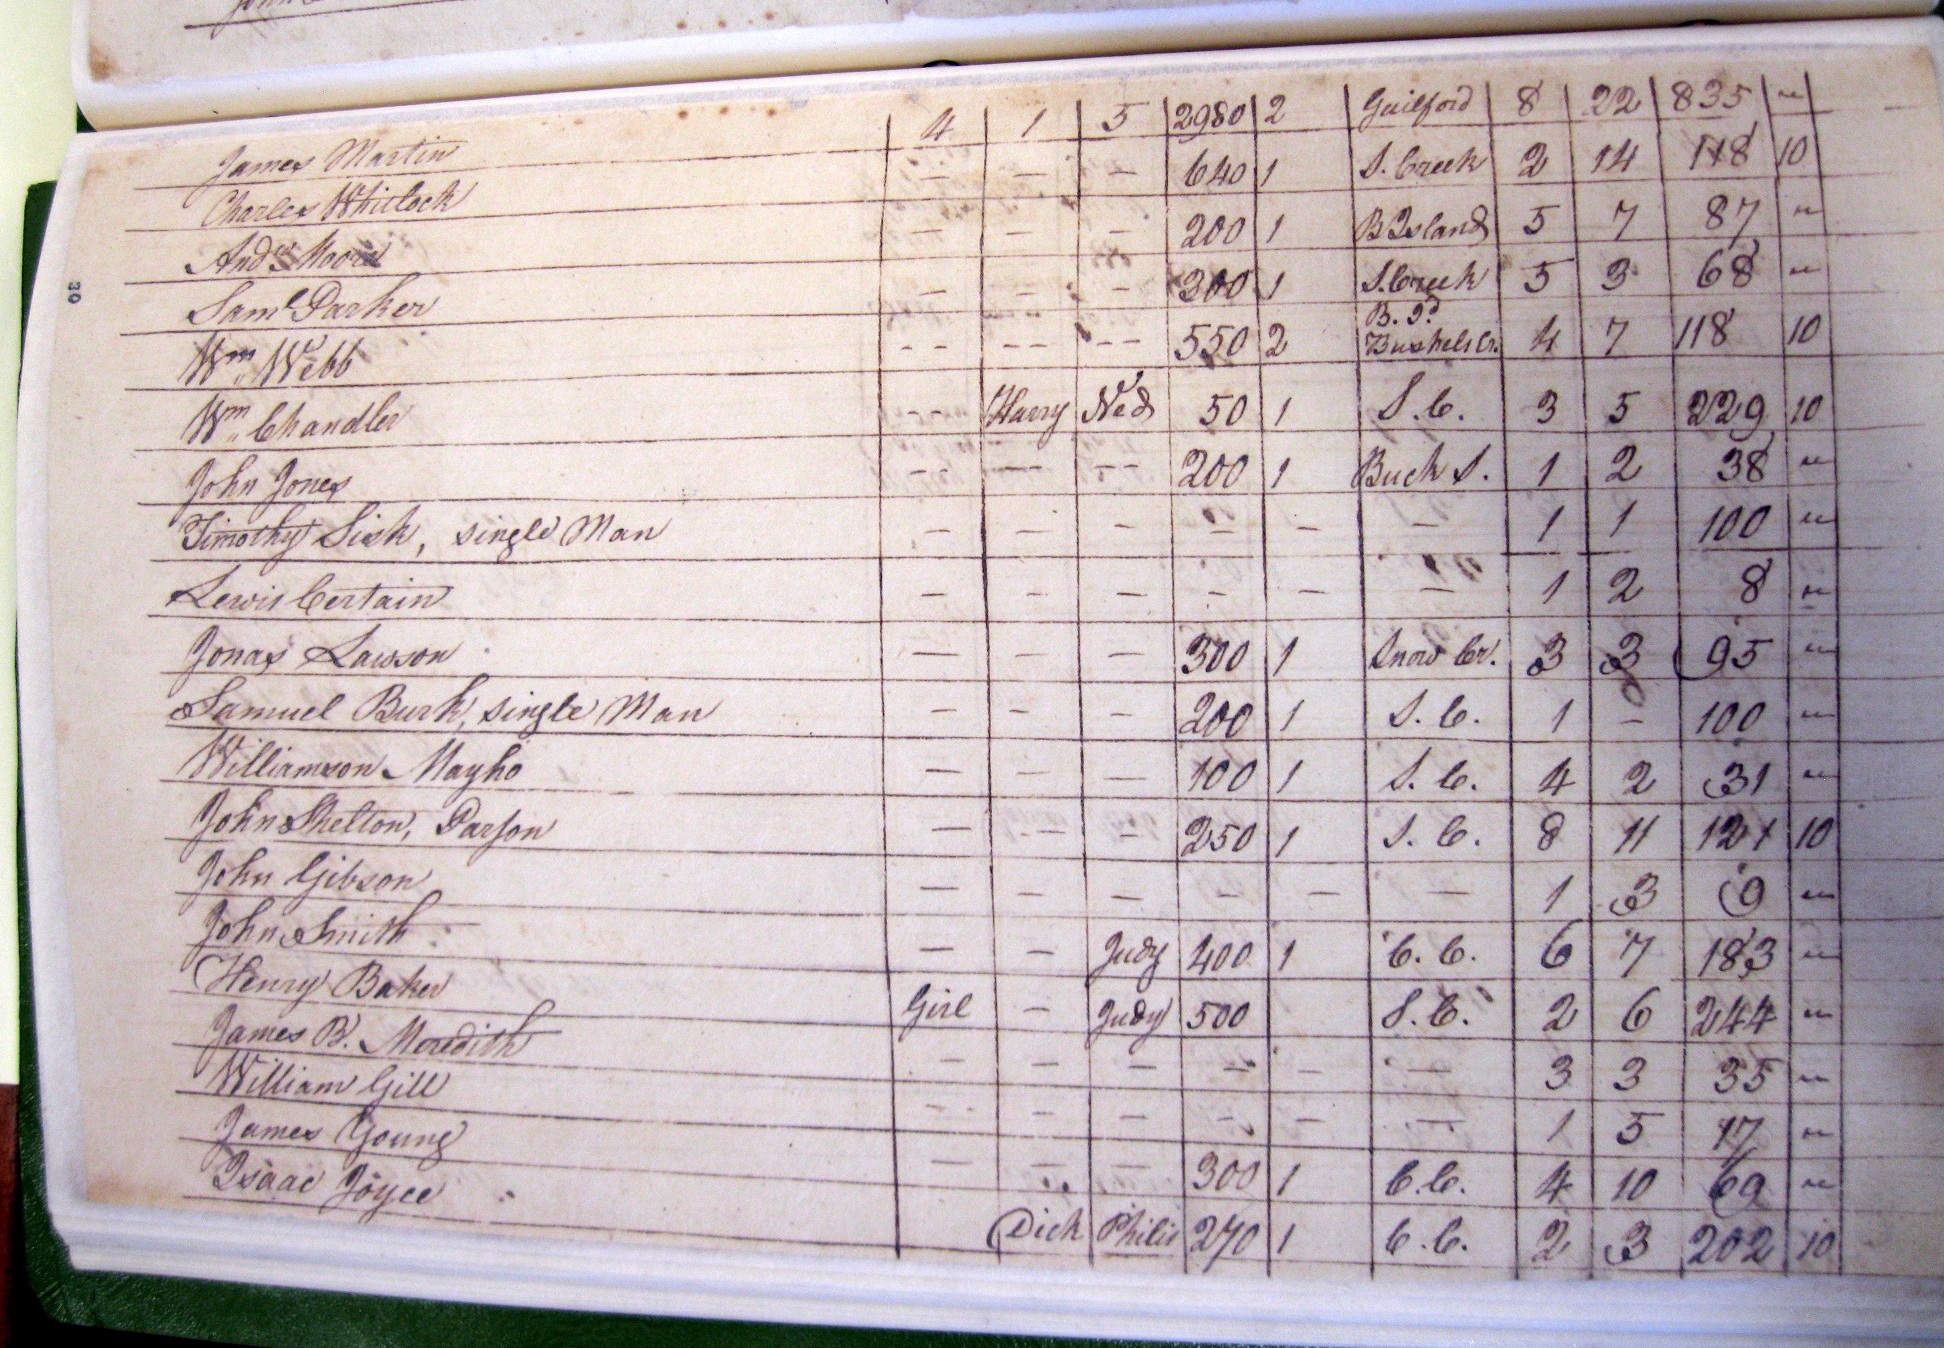 James Martin 4 1 5 2980 2 Guilford 8 22 835 "
Charles Whitlock — — — 640 1 S. Creek 2 14 118 10
Andw. Moore — — — 200 1 B Island 5 7 87 "
Saml Parker — — — 300 1 S. Creek 5 3 68 "
B. Id.
Wm. Webb -- -- -- 550 2 Bushels Cr. 4 7 118 10
Wm. Chandler -- Harry Ned 50 1 S. C. 3 5 229 10
John Jones -- -- -- 200 1 Buck I. 1 2 38 "
Timothy Sisk, single Man — — — — — — 1 1 100 "
Lewis Certain — — — — — — 1 2 8 "
Jonas Lawson — — — 300 1 Snow Cr. 3 3 95 "
Samuel Burk, single Man — — — 200 1 S. C. 1 — 100 "
Williamson Mayho — — — 100 1 S. C. 4 2 31 "
John Shelton, Parson — -- — 250 1 S. C. 8 11 121 10
John Gibson — — — — — — 1 3 9 "
John Smith — — Judy 400 1 C. C. 6 7 183 "
Henry Baker Girl — Judy 500 S. C. 2 6 244 "
James B. Meredith — — — — — — 3 3 35 "
William Gill -- — — — — — 1 5 17 "
James Young — — — 300 1 C. C. 4 10 69 "
Isaac Joyce Dick Philis 270 1 C. C. 2 3 202 10
30